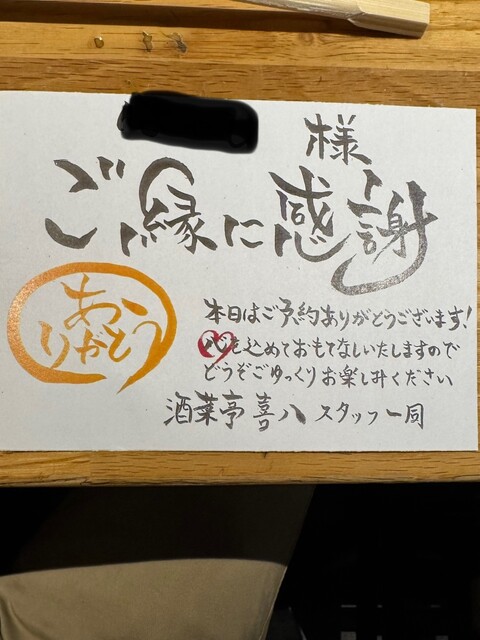 様
ご縁に感謝
ありがとう
本日はご予約ありがとうございます!
心を込めておもてなしいたしますので
どうぞごゆっくりお楽しみください
酒菜亭 喜八 スタッフ一同